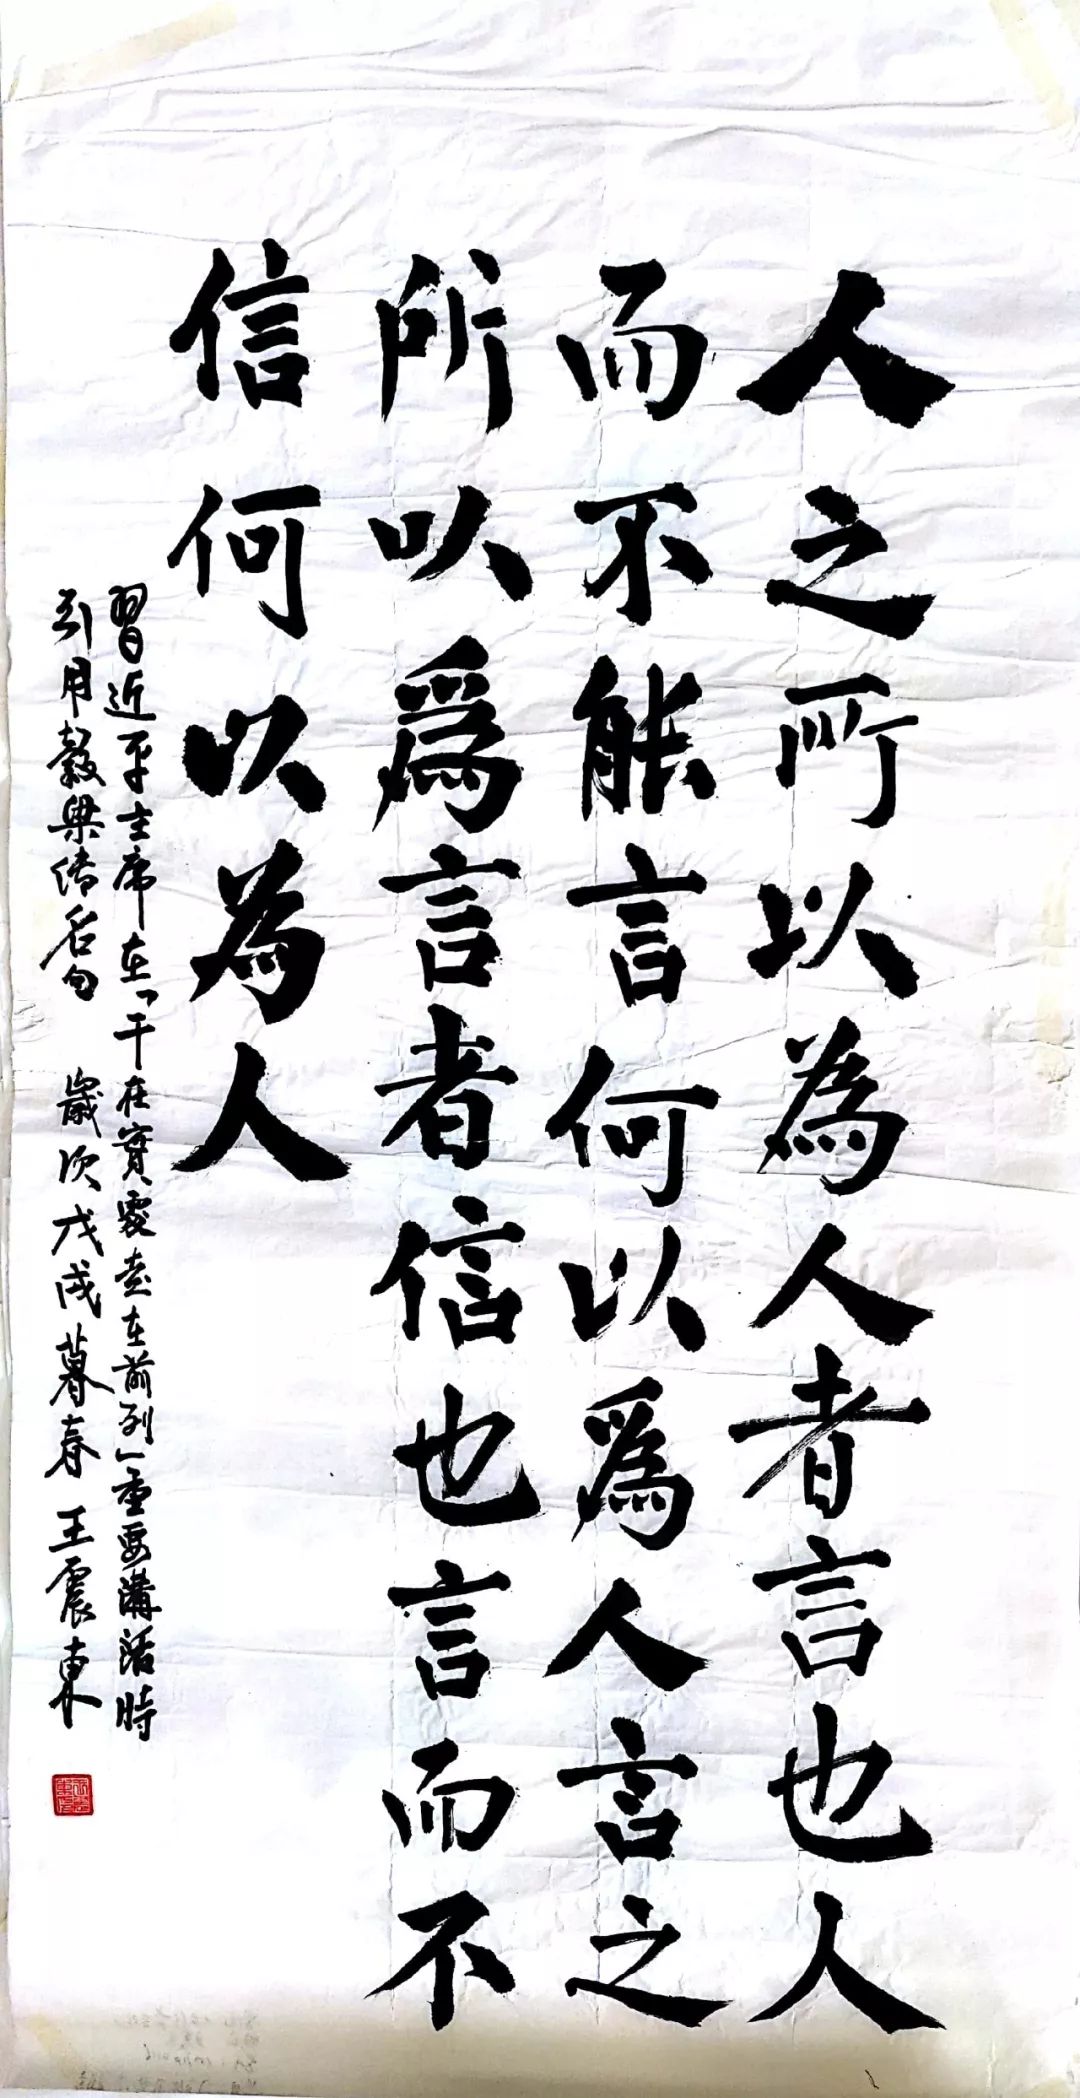 人之所以為人者言也人
而不能言何以爲人言之
所以爲言者信也言而不
信何以為人
習近平主席在「干在實處走在前列」重要講話時
引用穀梁传名句 歲次戊戌暮春 王震東